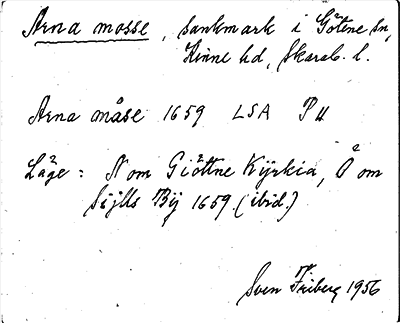 Arna mosse, sankmark i Götene sn,
Kinne hd, Skarab. l.
Arna måse 1659 LSA P 11
Läge: N om Giöttne Kÿrkia, Ö om
Sÿlls Bÿ 1659. (ibid.)
Sven Friberg 1956